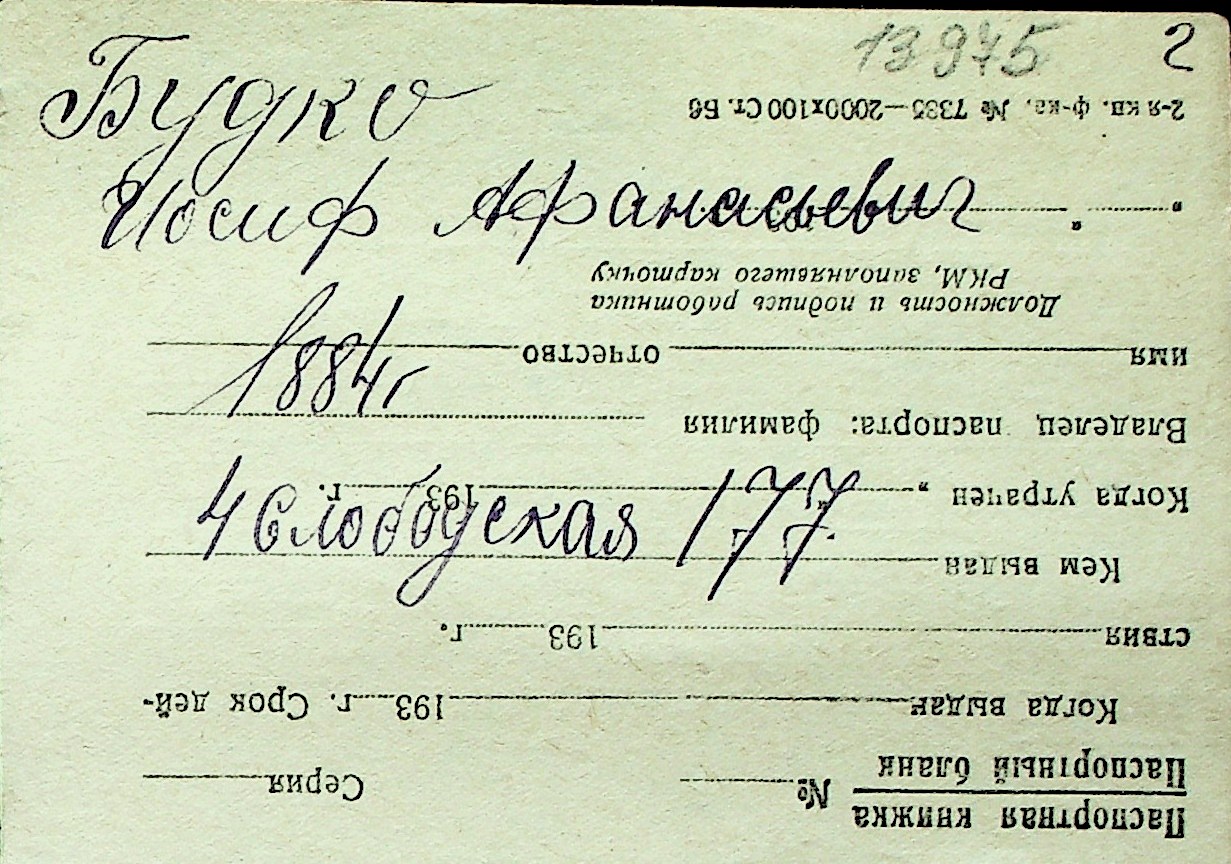 13975 2
Будко
Иосиф Афанасьевич
1884 г
4 Слободская 177
Паспортная книжка
Паспортный бланк
№ Серия
Когда выдан 193 г. Срок дей-
ствия 193 г.
Кем выдан
Когда утрачен „ “ 193 г.
Владелец паспорта: фамилия
имя отчество
Должность и подпись работника
РКМ, заполнявшего карточку
" " 193
2-я кв. ф-ка. № 7335—2000х100 Ст. Б6